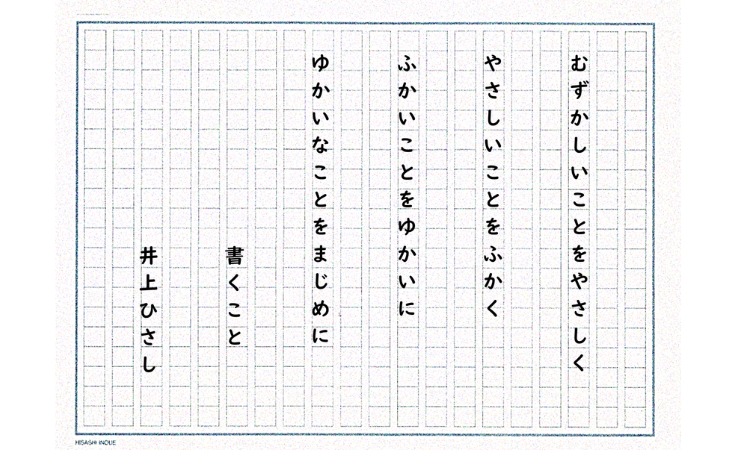 むずかしいことをやさしく
やさしいことをふかく
ふかいことをゆかいに
ゆかいなことをまじめに
書くこと
井上ひさし
HISASHI INOUE